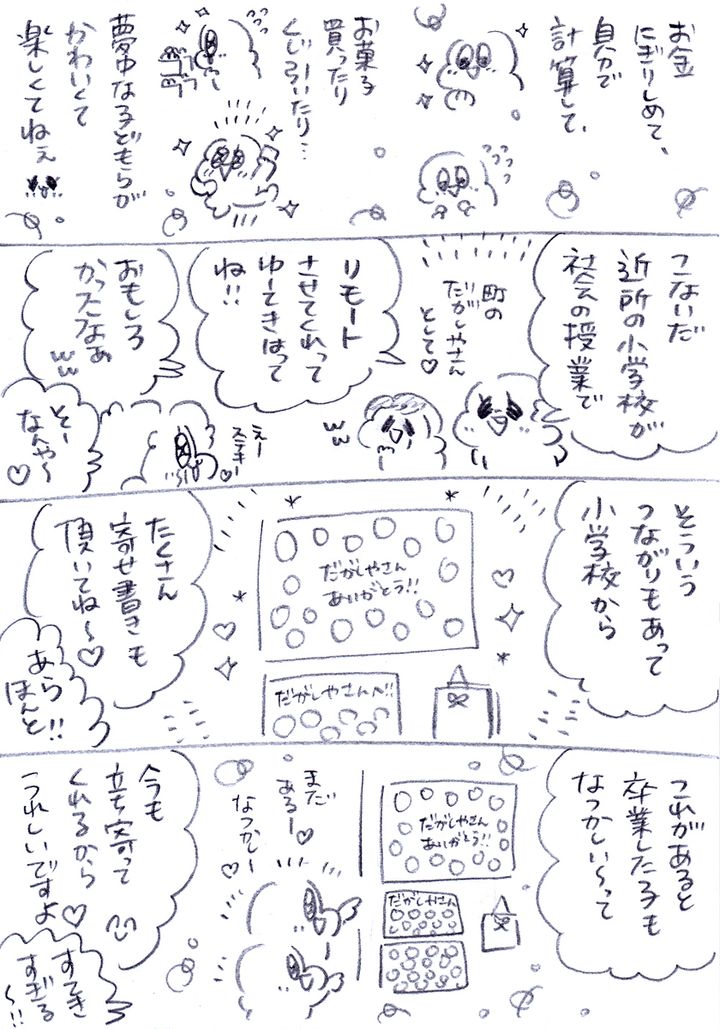 お金
にぎりしめて、
自分で
計算して、
お菓子
買ったり
くじ引いたり…
夢中な子どもらが
かわいくて
楽しくてねぇ
こないだ
近所の小学校が
社会の授業で
町の
だがしやさん
として♡
リモート
させてくれって
ゆーてきはって
ね!!
ww
おもしろ
かったなぁ
ww
えー
ステキ♡
そー
なんや〜
♡
そういう
つながりもあって
小学校から
だがしやさん
ありがとう!!
だがしやさんへ!!
たくさん
寄せ書きも
頂いてね〜♡
あら
ほんと!!
これがあると
卒業した子も
なつかしい〜って
だがしやさん
ありがとう!!
だがしやさん
まだ
あるー♡
なつかしー♡
今も
立ち寄って
くれるから♡
うれしいですよ
すてき
すぎる
〜!!